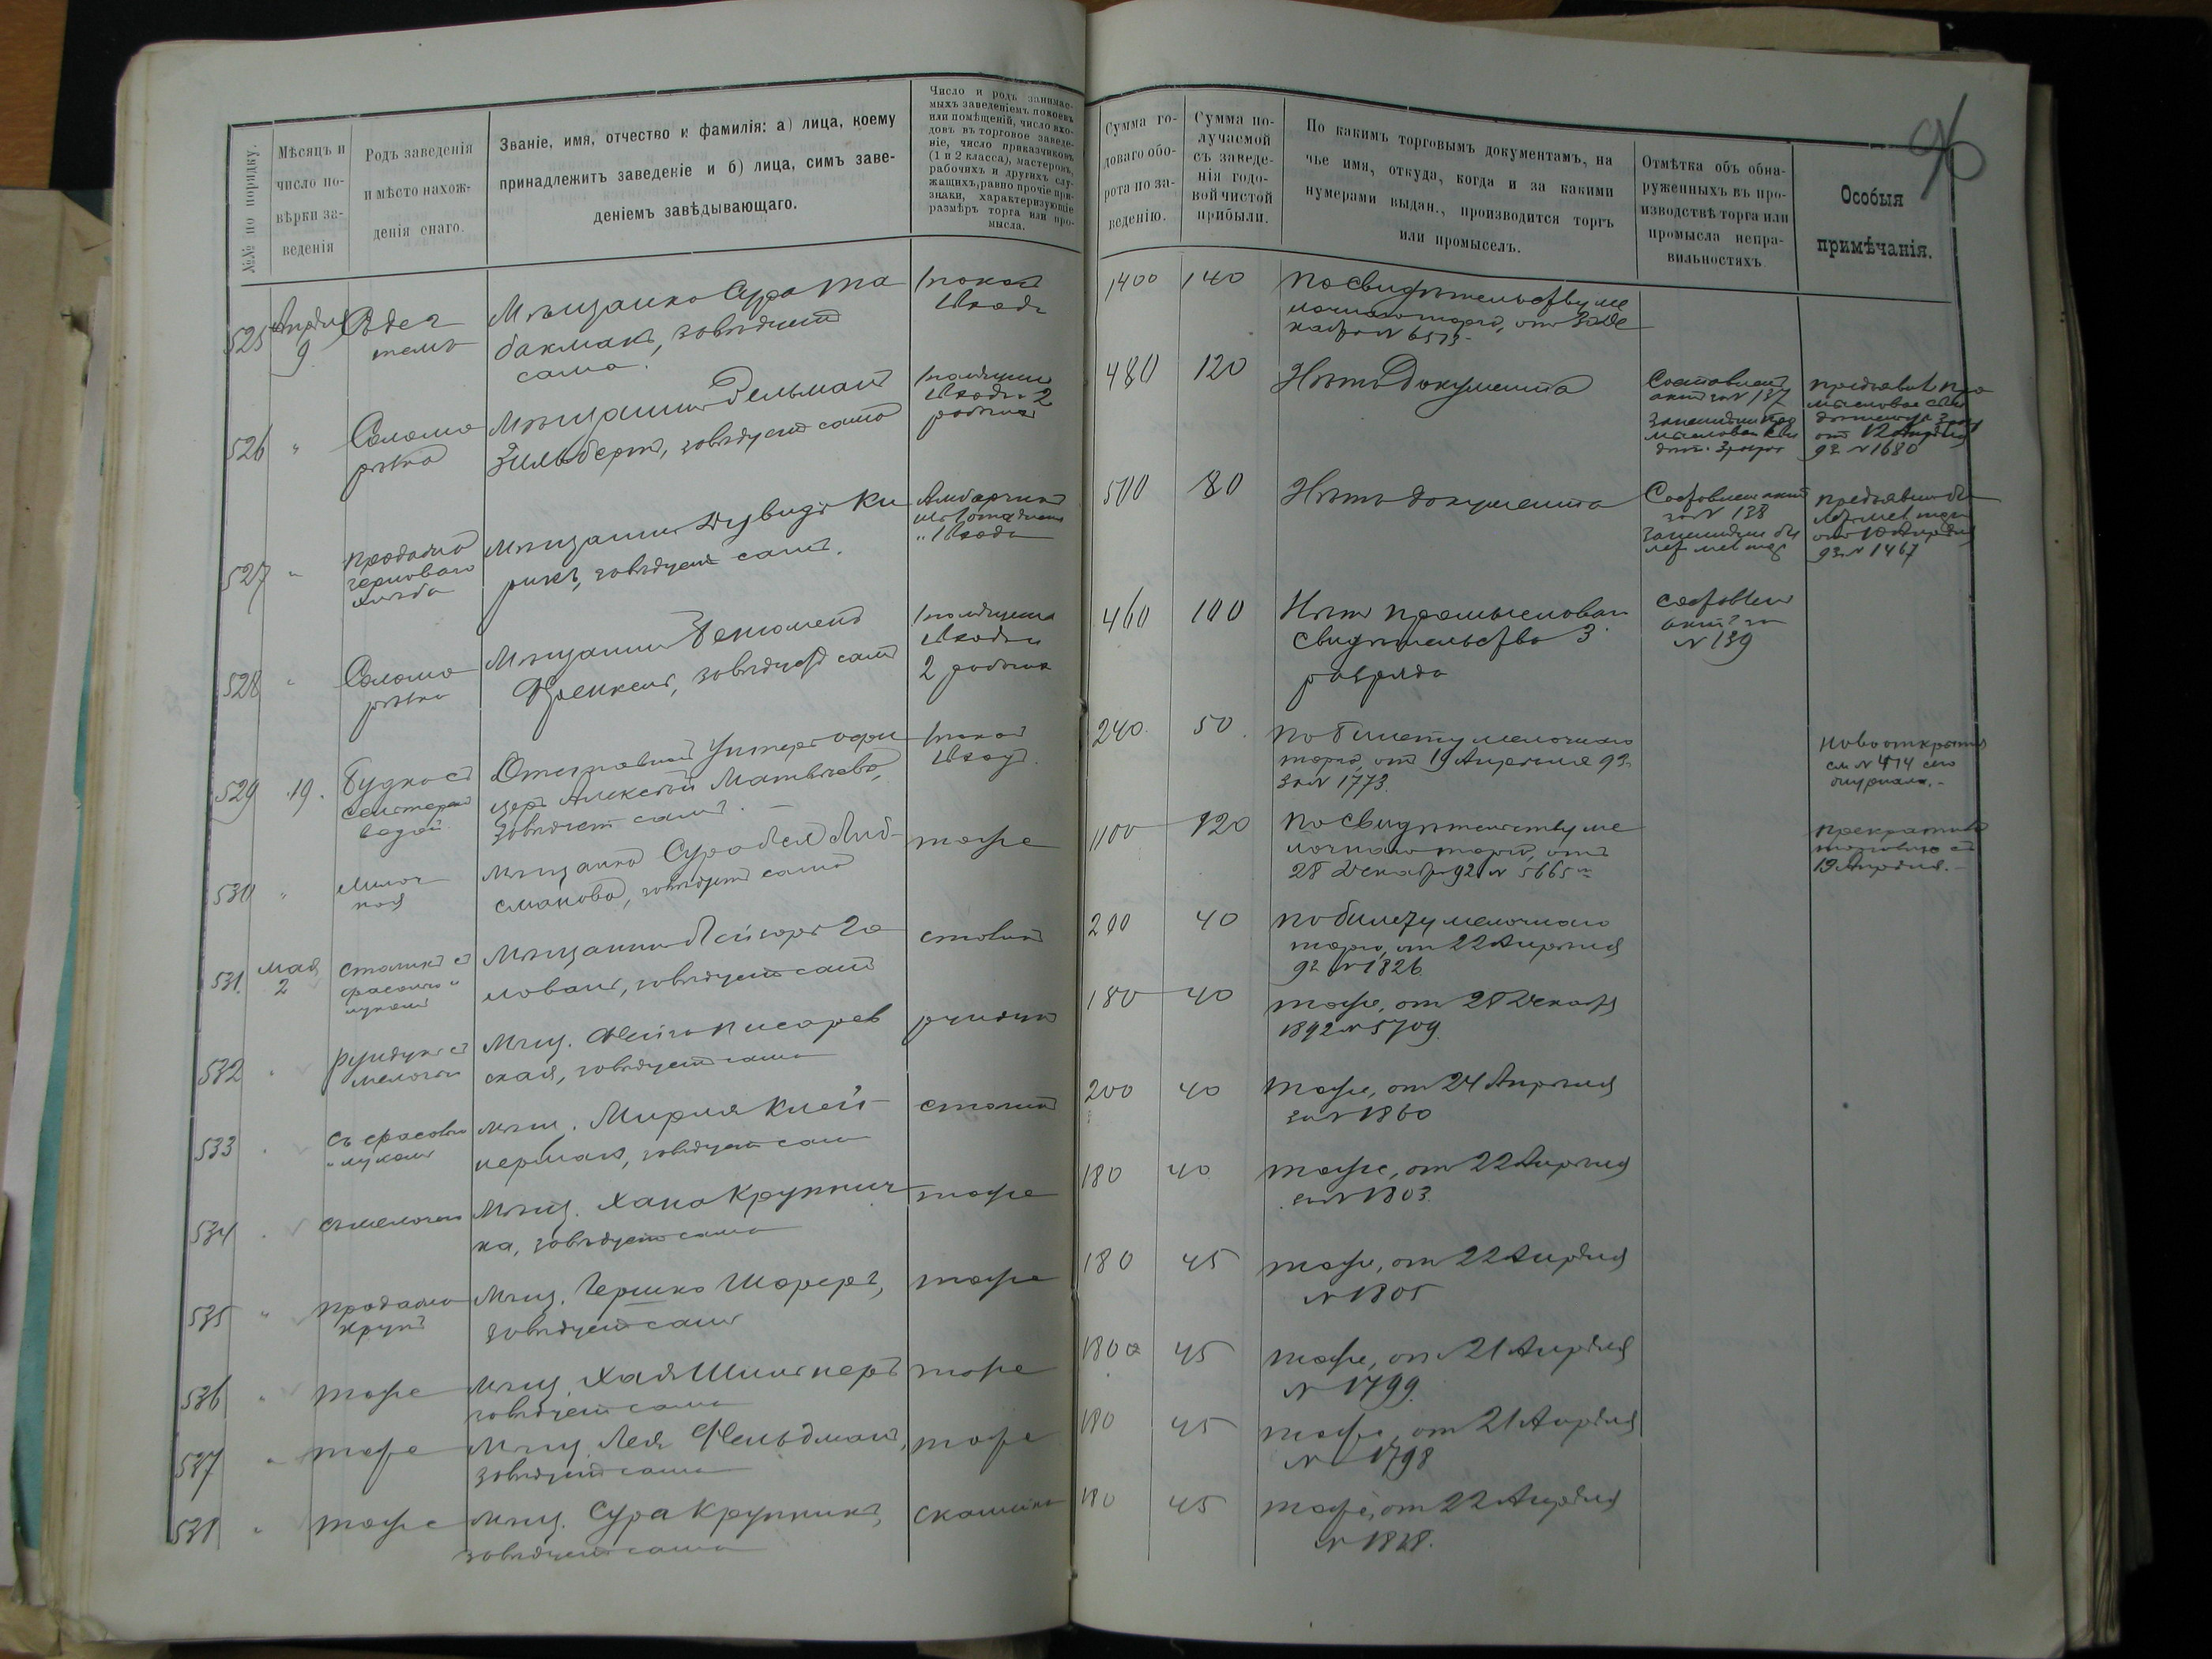 96
№№ по порядку.
Мѣсяцъ и
число по-
вѣрки за-
веденія
Родъ заведенія
и мѣсто нахож-
денія онаго.
Званіе, имя, отчество и фамилія: а) лица, коему
принадлежитъ заведеніе и б) лица, симъ заве-
деніемъ завѣдывающаго.
Число и родъ занимае-
мыхъ заведеніемъ покоевъ
или помѣщеній, число вхо-
довъ въ торговое заведе-
ніе, число приказчиковъ
(1 и 2 класса), мастеровъ,
рабочихъ и другихъ слу-
жащихъ, равно прочіе при-
знаки, характеризующіе
размѣръ торга или про-
мысла.
Сумма го-
доваго обо-
рота по за-
веденію.
Сумма по-
лучаемой
съ заведе-
нія годо-
вой чистой
прибыли.
По какимъ торговымъ документамъ, на
чье имя, откуда, когда и за какими
нумерами выдан., производится торгъ
или промыселъ.
Отмѣтка объ обна-
руженныхъ въ про-
изводствѣ торга или
промысла непра-
вильностяхъ.
Особыя
примѣчанія.
525
Апрѣля
9
Мѣщанка Сура Та
бакмакъ, завѣдуетъ
сама.
1 покой
1 входъ
1400
140
По свидѣтельству ме
лочнаго торга, от 30 Де
кабря № 6573
526
"
Соломо
рѣзка
Мѣщанинъ Зельманъ
Зильберт, завѣдуетъ самъ
1 помѣщеніе
1 входъ 2
рабочихъ
480
120
Нѣтъ Документа
Составленъ
актъ за № 137
предъявилъ про
мысловое сви
от 12 Апрѣля
93 № 1680
527
"
Продажа
чернового
хлѣба
Мѣщанинъ Дувидъ Ки
рикъ, завѣдуетъ самъ.
" 1 входъ
500
80
Нѣтъ документа
Составленъ актъ
за № 138
от 10 Апрѣля
93 № 1467
528
"
Соломо
рѣзка
Мѣщанинъ
Френкель, завѣдуетъ самъ
1 помѣщеніе
1 входъ и
2 рабочих
460
100
Нѣтъ промысловаго
свидѣтельства 3
разряда
Составленъ
актъ за
№ 139
529
19.
Будка съ
сельтерской
водой
Отставной Унтеръ офи
церъ Алексѣй Матвѣевъ,
завѣдуетъ самъ.
1 покой
1 входъ.
240
50
По билету мелочнаго
торга, от 19 Апрѣля 93
за № 1773.
Новооткрытая
см № 474 сего
журнала.
530
"
Мелоч
ная
Мѣщанка Сура Бейля Либ-
сманова, завѣдуетъ сама
тоже
1100
120
По свидѣтельству ме
лочнаго торга, отъ
28 Декабря 92 № 5665
прекратила
торговлю съ
19 Апрѣля.
531.
Мая
2
Столикъ съ
фасолью и
лукомъ
Мѣщанинъ Лейзоръ Го
лованъ, завѣдуетъ самъ
столикъ
200
40
По билету мелочнаго
торга, от 22 Апрѣля
93 № 1826
532
"
Рундукъ съ
мелочью
Мѣщ. Фейга Писарев
ская, завѣдуетъ сама
рундукъ
180
40
тоже, от 28 Декабря
1892 № 5709
533
"
Съ фасолью
и лукомъ
мѣщ. Мирля Клей
нерманъ, завѣдуетъ сама
столикъ
200
40
тоже, от 24 Апрѣля
за № 1860
534
"
Съ мелочью
Мѣщ. Хана Крупнич
ка, завѣдуетъ сама
тоже
180
40
тоже, от 22 Апрѣля
за № 1803.
535
"
Продажа
крупъ
Мѣщ. Гершко Шореръ,
завѣдуетъ самъ
тоже
180
45
тоже, от 22 Апрѣля
№ 1805
536
"
тоже
Мѣщ. Хая
завѣдуетъ сама
тоже
180
45
тоже, от 21 Апрѣля
№ 1799.
537
"
тоже
Мѣщ. Лея Фельдманъ,
завѣдуетъ сама
тоже
180
45
тоже, от 21 Апрѣля
№ 1798
538
"
тоже
Мѣщ. Сура Крупникъ,
завѣдуетъ сама
скамейка
180
45
тоже, от 22 Апрѣля
№ 1828.